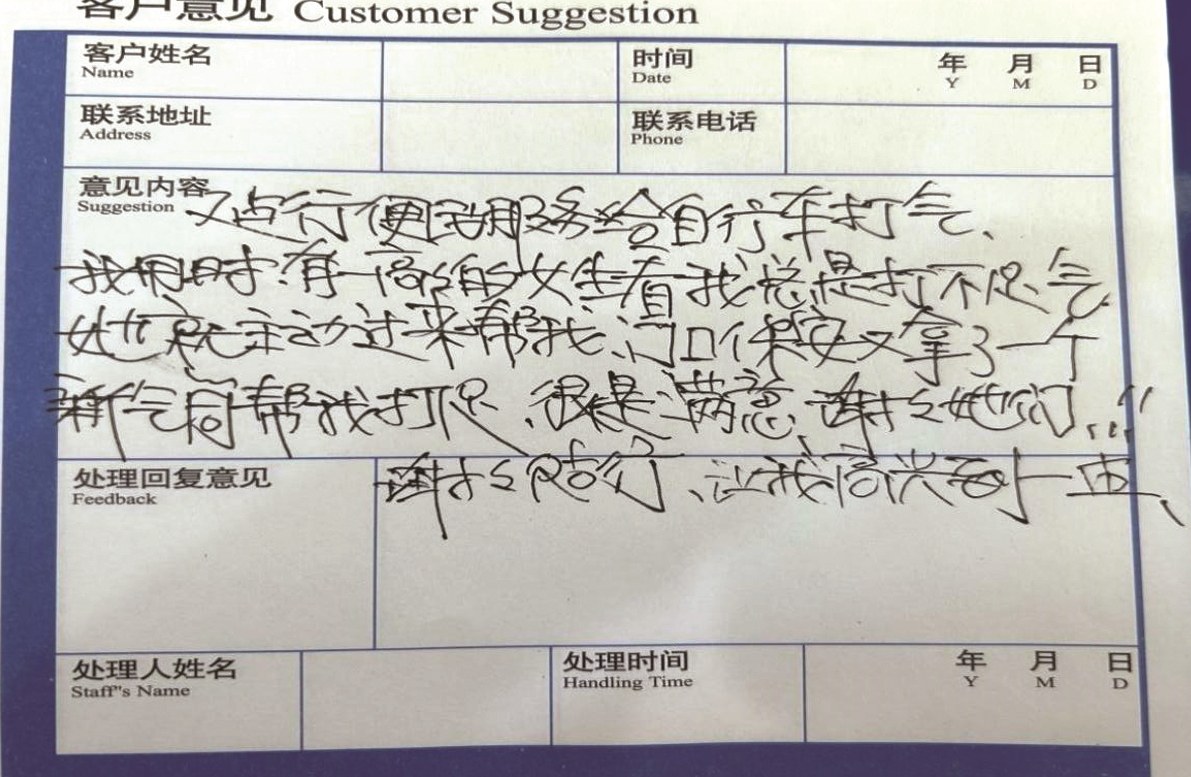 客户意见 Customer Suggestion
客户姓名 时间 年 月 日
Name Date Y M D
联系地址 联系电话
Address Phone
意见内容
Suggestion 行便民服务给自行车打气、
我用时有一高个的女生看我总是打不足气
她就主动过来帮我、门口保安又拿了一个
新气筒帮我打足、很是满意、谢谢她们...!!
处理回复意见 谢谢 行、让我高兴每一
Feedback
处理人姓名 处理时间 年 月 日
Staff"s Name Handling Time Y M D